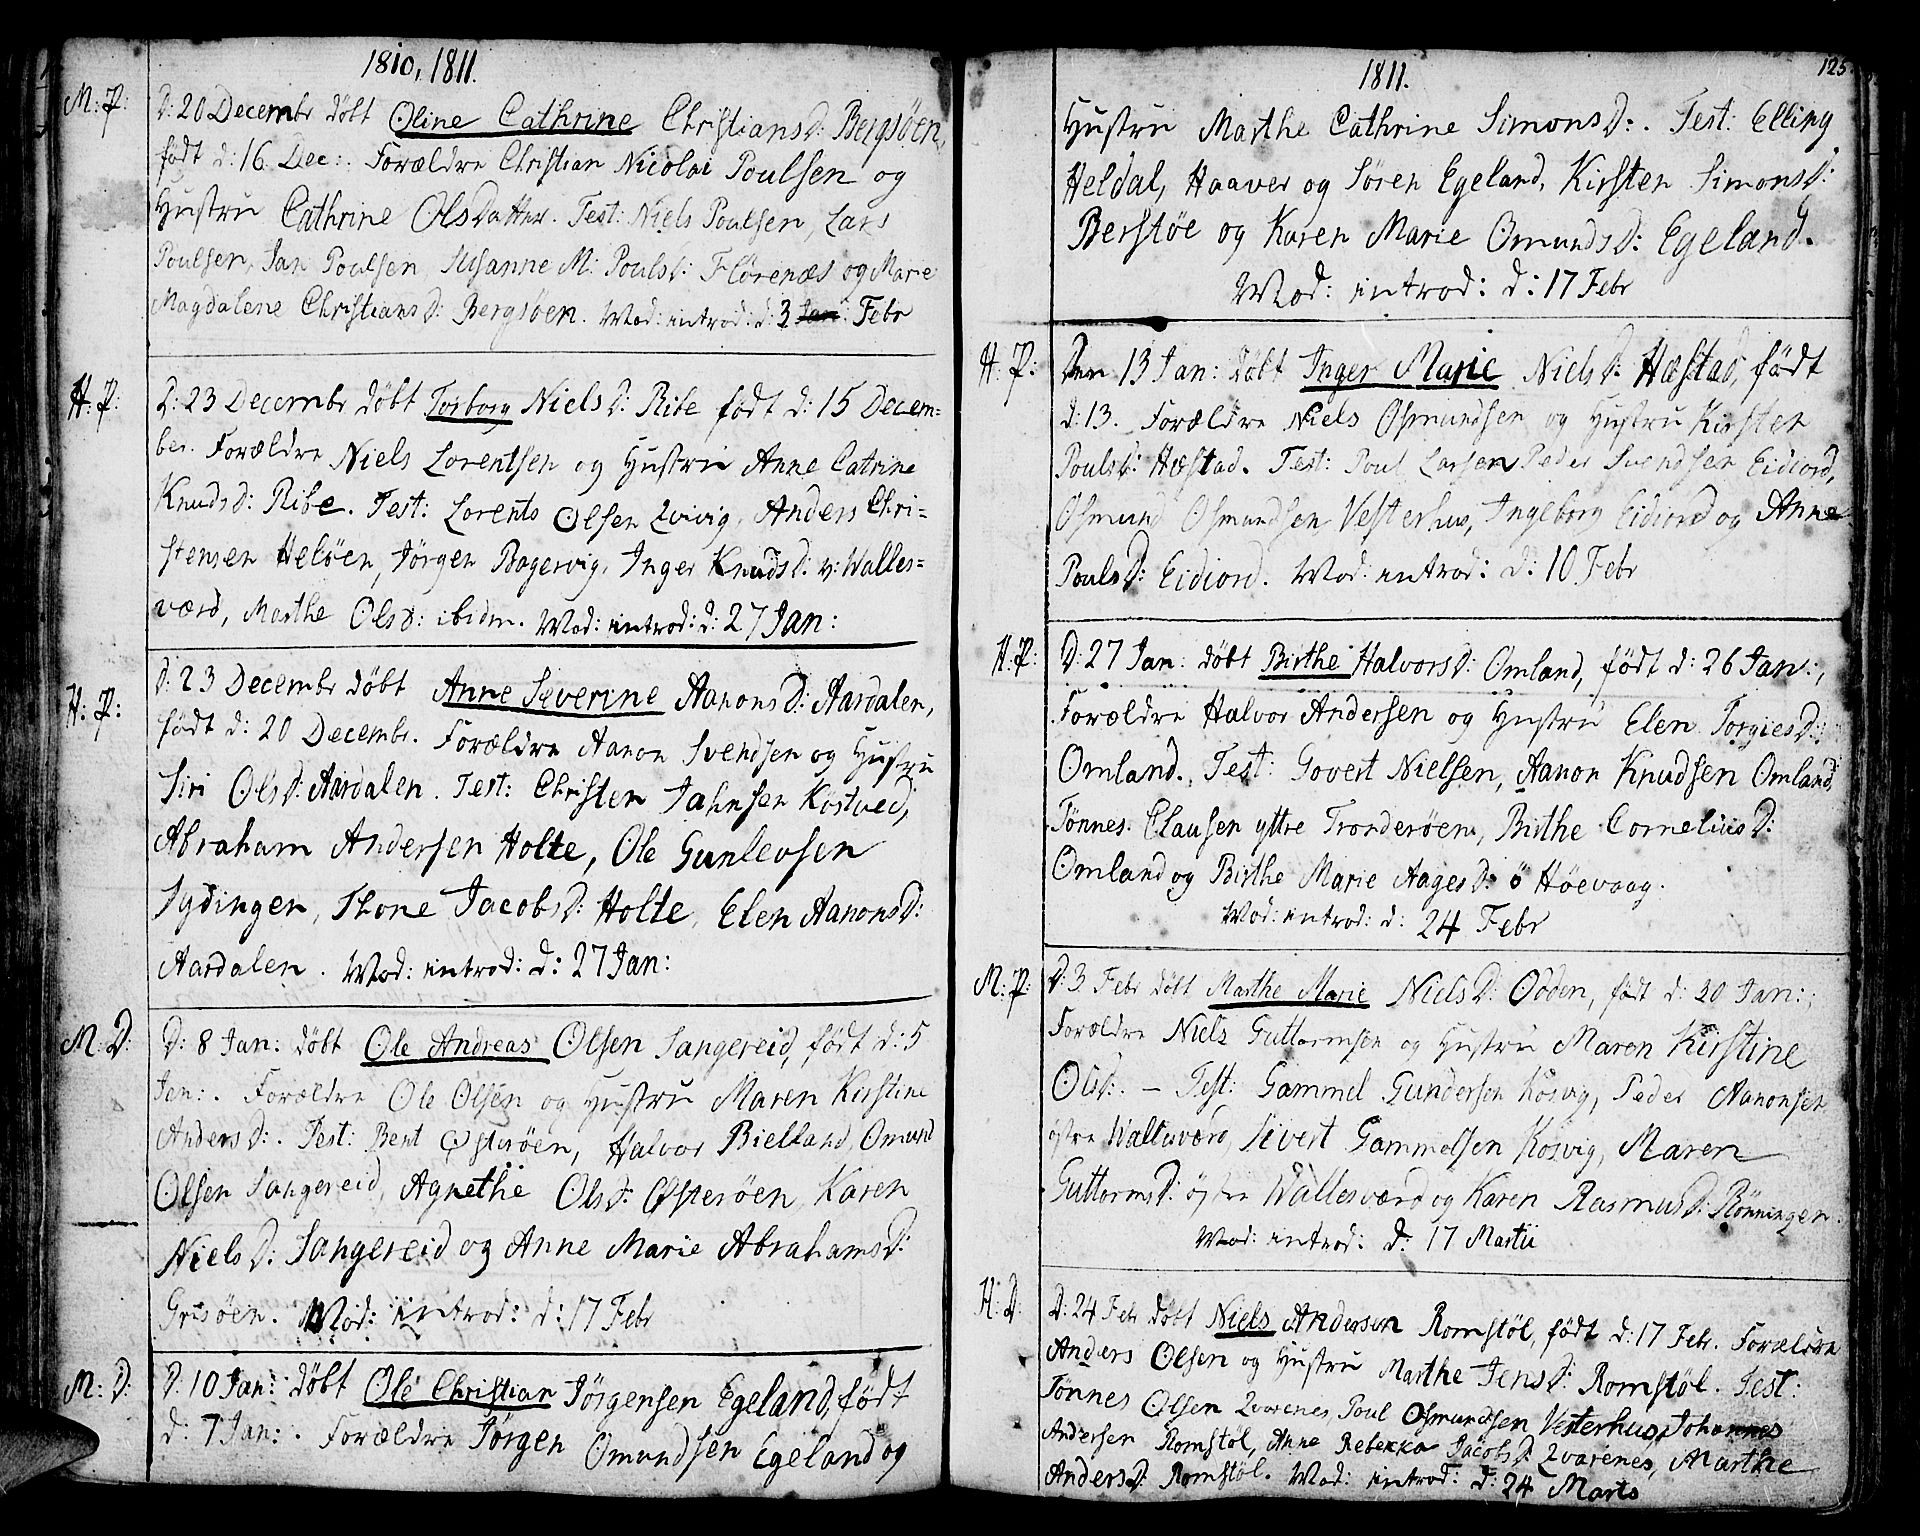 1810, 1811.
M: P:
D: 20 Decembr døbt Oline Cathrine Christians D: Bergsøen,
født d: 16 Dec: Forældre Christian Nicolai Poulsen og
Hustru Cathrine Olsdatter. Test: Niels Poulsen, Lars
Poulsen, Jan Poulsen, Susanne M: Pouls D: Flørenæs og Marie
Magdalene Christians D: Bergsøen. Mod: introd: d: 3 Jan: Febr
H: P:
D: 23 Decembr døbt Torborg Niels D: Ribe født d: 15 Decem=
ber. Forældre Niels Lorentsen og Hustru Anne Catrine
Knuds D: Ribe. Test: Lorents Olsen Qvivig, Anders Chri=
stensen Heløen, Jørgen Bagervig, Inger Knuds D: y: Walles=
værd, Marthe Ols D: ibidm. Mod: introd: d: 27 Jan:
H: P:
D: 23 Decembr døbt Anne Severine Aanons D: Aardalen,
født d: 20 Decembr. Forældre Aanon Svendsen og Hustru
Siri Ols D: Aardalen. Test: Christen Jahnsen Kostved,
Abraham Andersen Holte, Ole Gunlevsen
Tydingen, Thone Jacobs D: Holte, Elen Aanons D:
Aardalen. Mod: introd: d: 27 Jan:
M: D:
D: 8 Jan: døbt Ole Andreas Olsen Sangereid, født d: 5
Jan:. Forældre Ole Olsen og Hustru Maren Kirstine
Anders D:. Test: Bent Østerøen, Halvor Bielland, Omund
Olsen Sangereid, Agnethe Ols D: Østerøen, Karen
Niels D: Sangereid og Anne Marie Abrahams D:
Grisøen. Mod: introd: d: 17 Febr
M: D:
D: 10 Jan: døbt Ole Christian Jørgensen Egeland, født
d: 7 Jan:. Forældre Jørgen Omundsen Egeland og
1811.
125
Hustru Marthe Cathrine Simons D:. Test: Elling
Heldal, Haaver og Søren Egeland, Kirsten Simons D:
Berstøe og Karen Marie Omunds D: Egeland.
Mod: introd: d: 17 Febr
H: P:
Den 13 Jan: døbt Inger Marie Niels D: Hæstad, født
d: 13. Forældre Niels Osmundsen og Hustru Kirsten
Pouls D: Hæstad. Test: Poul Larsen Peder Svendsen Eidiord,
Osmund Osmundsen Vesterhus, Ingeborg Eidiord og Anne
Pouls D: Eidiord. Mod: introd: d: 10 Febr
H: P:
D: 27 Jan: døbt Birthe Halvors D: Omland, født d: 26 Jan:,
Forældre Halvor Andersen og Hustru Elen Torgies D:
Omland. Test: Govert Nielsen, Aanon Knudsen Omland,
Tønnes Clausen yttre Tronderøen, Birthe Cornelius D:
Omland og Birthe Marie Aages D: ö Høevaag.
Mod: introd: d: 24 Febr
M: P:
D: 3 Febr døbt Marthe Marie Niels D: Odden, født d: 20 Jan:,
Forældre Niels Guttormsen og Hustru Maren Kirstine
Ols D:. – Test: Gammel Gundersen Kosvig, Peder Aanonsen
østre Wallesværd, Sivert Gammelsen Kosvig, Maren
Guttorms D: østre Wallesværd og Karen Rasmus D: Rønningen.
Mod: introd: d: 17 Martii
H: D
D: 24 Febr døbt Niels Andersen Romstøl, født d: 17 Febr. Forældre
Anders Olsen og Hustru Marthe Jens D: Romstøl. Test:
Tønnes Olsen Qvarenes, Poul Osmundsen Vesterhus, Johannes
Andersen Romstøl, Anne Rebekka Jacobs D: Qvarenes, Marthe
Anders D: Romstøl. Mod: introd: d: 24 Marts